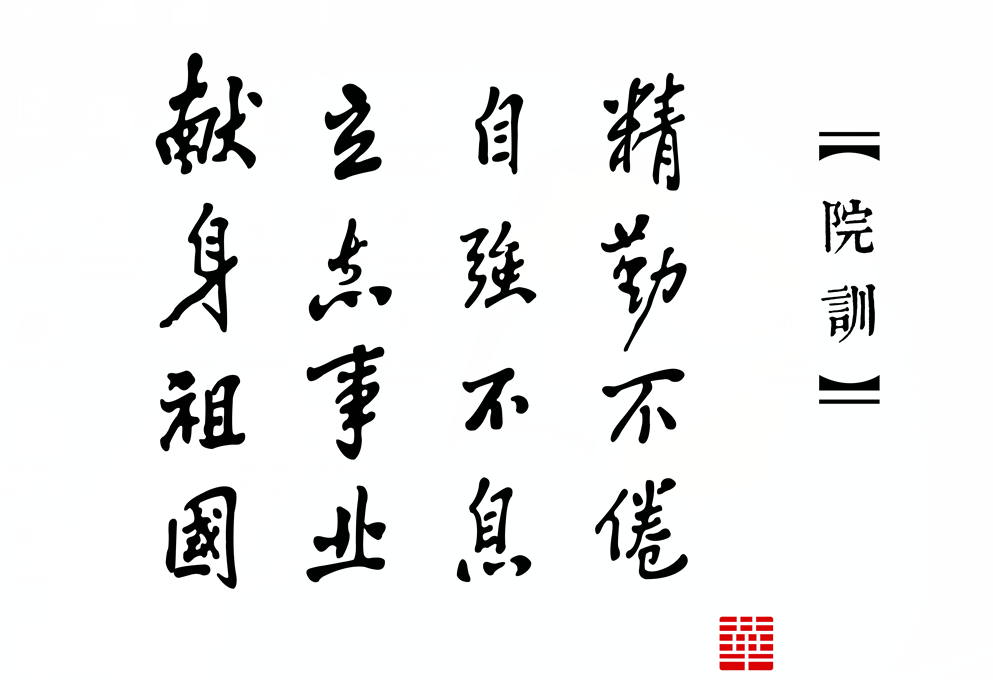 【院訓】
精勤不倦
自強不息
立志事业
献身祖國